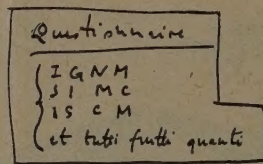 Questionnaire
I G N M
S I M C
I S C M
et tutti frutti quanti